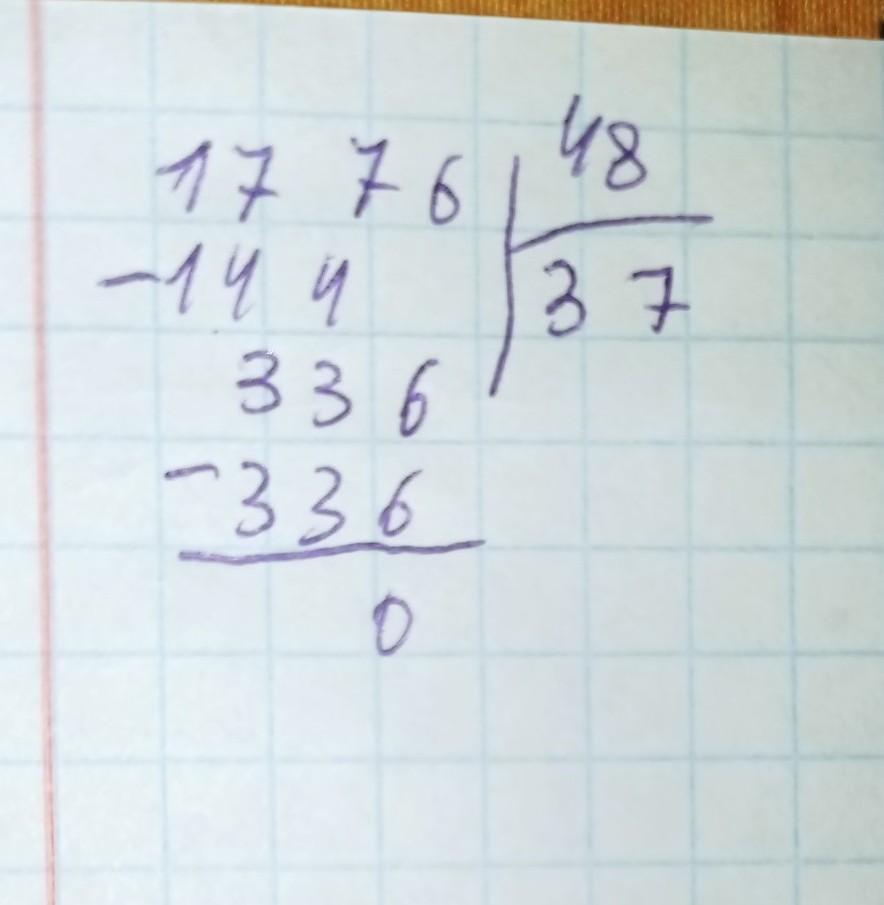 1776 48
-144 37
336
-336
0